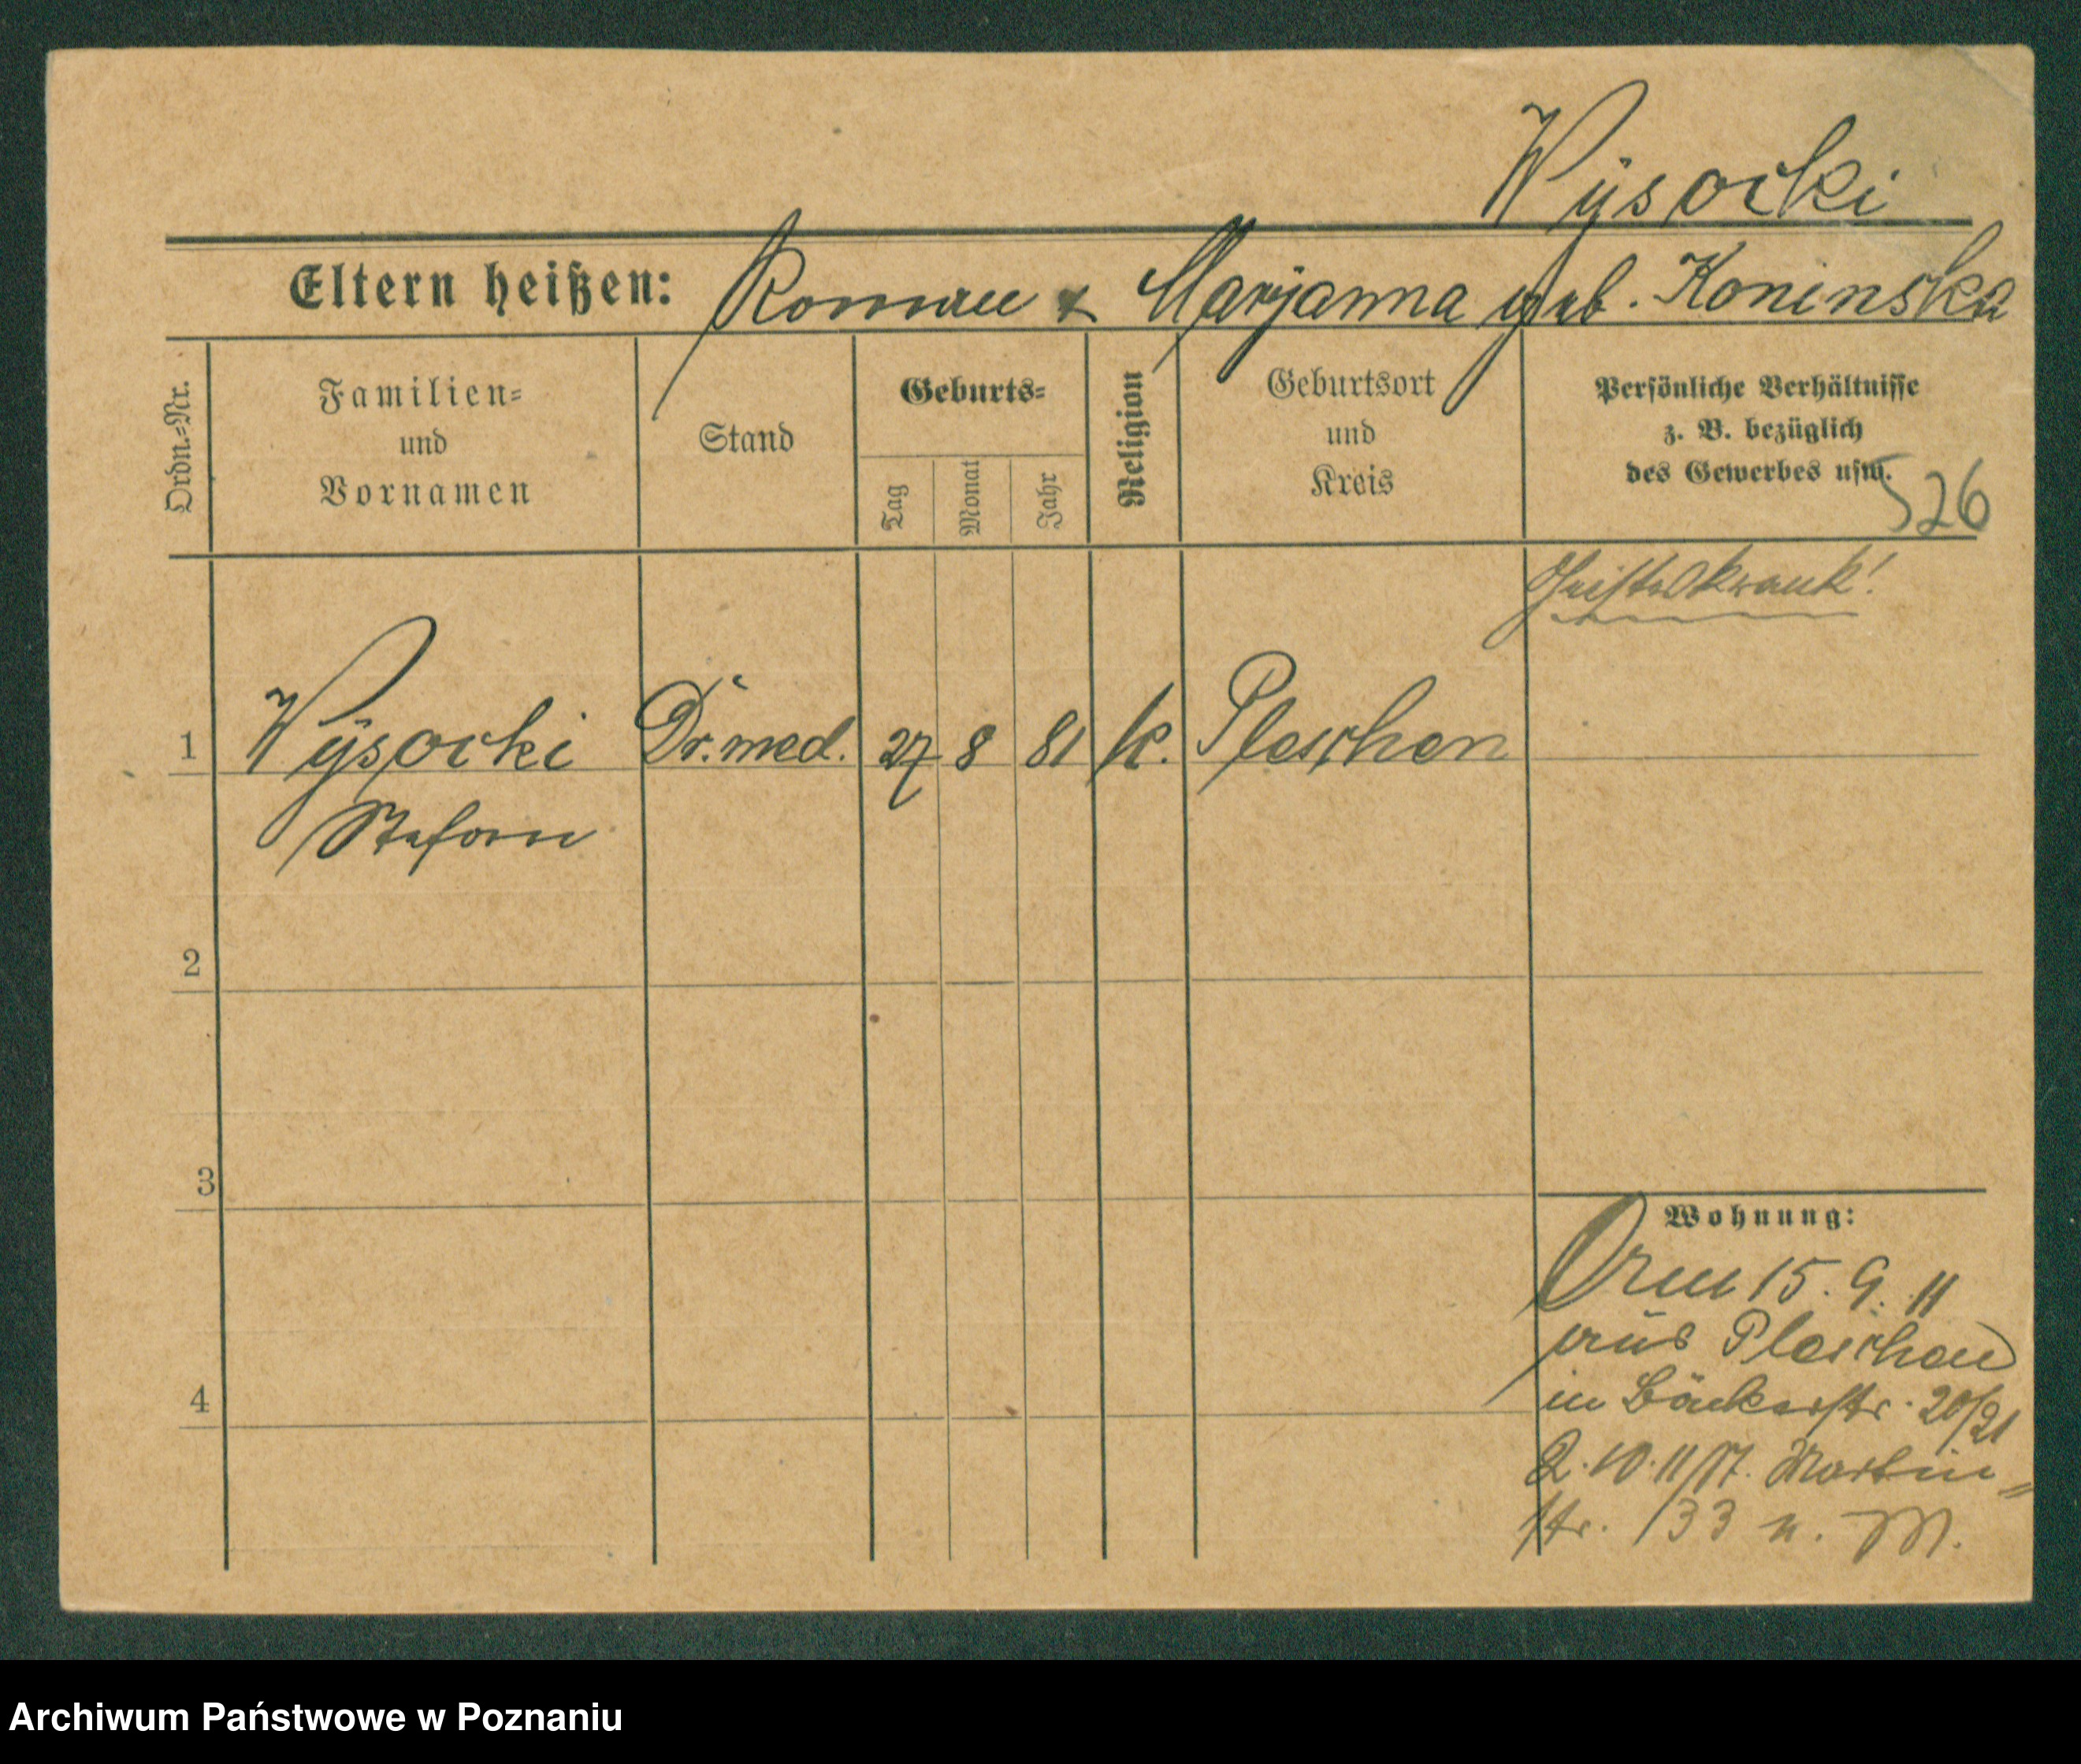 Wÿsocki
Eltern heißen: Roman & Marjanna geb. Koninska
Ordn.=Nr.
Familien=
und
Vornamen
Stand
Geburts=
Tag
Monat
Jahr
Religion
Geburtsort
und
Kreis
Persönliche Verhältnisse
z. B. bezüglich
des Gewerbes usw.
526
Geisteskrank!
1 Wÿsocki Dr. med. 27 8 81 k. Pleschen
Stefan
2
3
4
Wohnung:
Am 15. 9. 11
aus Pleschen
in Bäckerstr. 20/21
2. 10. 11/17. Martin=
str. 33 n. M.
Archiwum Państwowe w Poznaniu